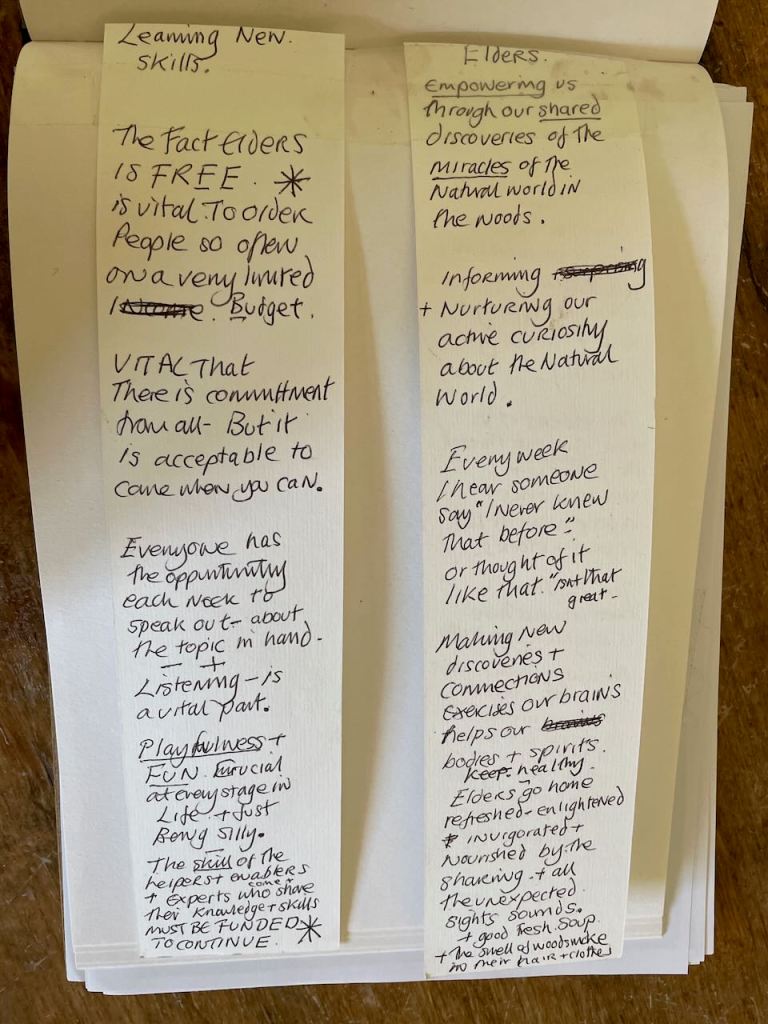 Learning New
Skills.
The Fact Elders
is FREE. *
is vital. To older
People so often
on a very limited
Income. Budget.
VITAL That
There is committment
from all - But it
is acceptable to
come when you can.
Everyone has
the oppuntunity
each week to
speak out - about
the topic in hand -
+
Listening - is
a vital part.
Playfulness +
FUN. crucial
at every stage in
Life + Just
Being silly.
The skill of the
helpers + enablers
+ experts who come + share
their knowledge + skills
MUST BE FUNDED *
TO CONTINUE.
Elders.
Empowering us
through our shared
discoveries of the
miracles of the
Natural world in
the woods.
Informing + surprising
+ Nurturing our
active curiosity
about the Natural
World.
Every week
I hear someone
say "I never knew
that before".
or thought of it
like that." Isn't that
great -
Making new
discoveries +
connections
exercises our brains
helps our brains
bodies + spirits.
keep healthy.
Elders go home
refreshed - enlightened
invigorated +
Nourished by the
sharing + all
the unexpected
sights sounds.
+ good fresh soup.
+ the smell of woodsmoke
in their hair + clothes